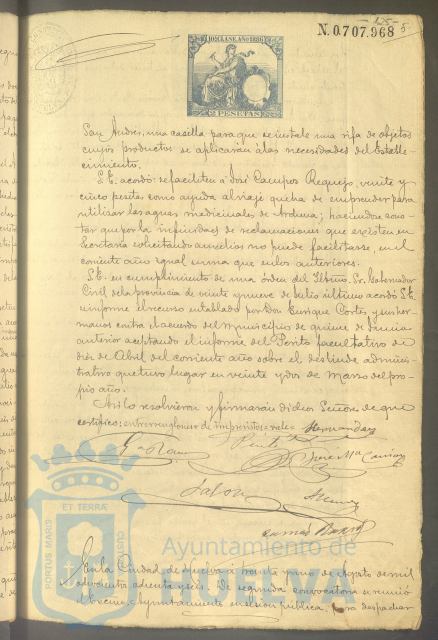 N. 0.707.968
125
5
10ª CLASE. AÑO 1886
2 PESETAS
San Andrés, una casilla para que se instale una rifa de objetos
cuyos productos se aplicarán á las necesidades del Estable-
cimiento.
S.E. acordó: se faciliten a José Campos Requejo, veinte y
cinco pesetas como ayuda al viaje que ha de emprender para
utilizar las aguas medicinales de ; haciendose cons-
tar que por la infinidad de reclamaciones que existen en
Secretaría solicitando auxilios no puede facilitarse en el
corriente año igual suma que en los anteriores.
S.E. en cumplimiento de una órden del Iltmo. Sr. Gobernador
Civil de la provincia de veinte y nueve de Julio último acordó S.E.
informe el recurso entablado por Don Enrique Cortés y sus her-
manos contra el acuerdo del Municipio de quince de Junio
anterior aceptando el informe del Perito facultativo de
diez de Abril del corriente año sobre el deslinde adminis-
trativo que tuvo lugar en veinte y dos de Marzo del pro-
pio año.
Así lo resolvieron y firmarán dichos Señores de que
certifico: entrerenglones de impresitos = vale = Hernandez
José Mª
Jalon
En la Ciudad de Huelva á treinta y uno de Agosto de mil
ochocientos ochenta y seis. De segunda convocatoria se reunió
el Excmo. Ayuntamiento en sesion pública, para despachar
PORTUS MARIS ET TERRÆ CUSTODIA
Ayuntamiento de
HUELVA